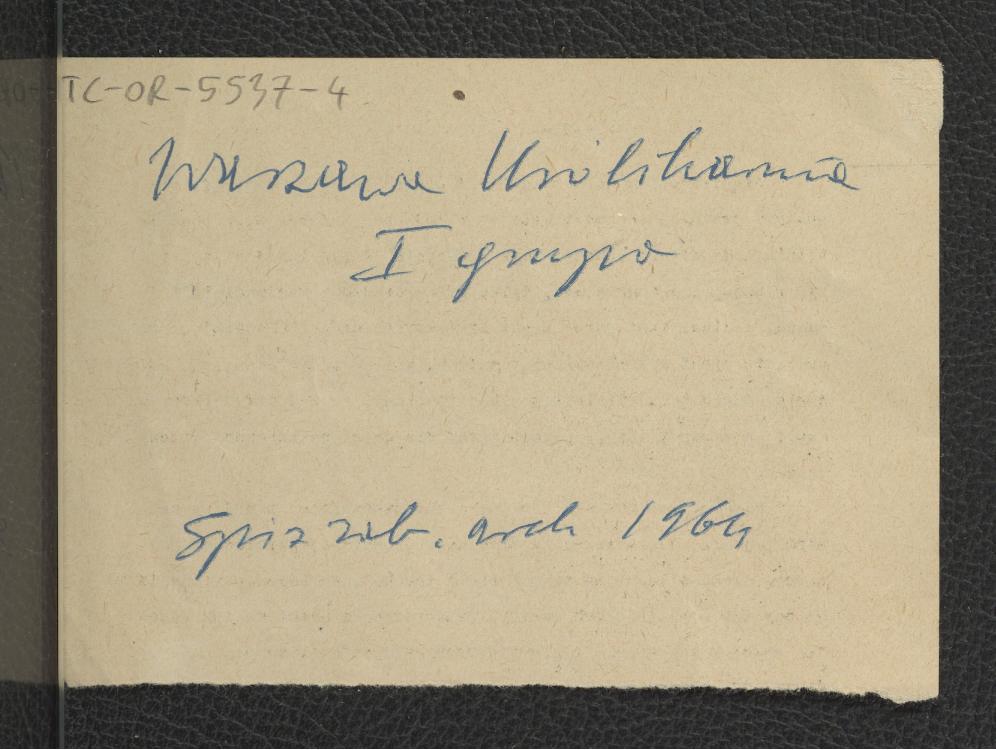 TC-OR-5537-4
Warszawa Królikarnia
I grupa
Spis zab. arch 1964